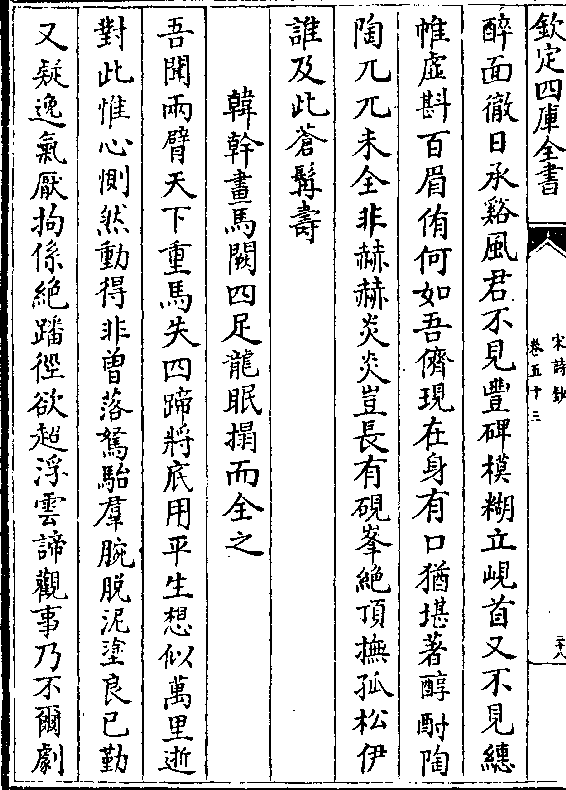 欽定四庫全書
宋詩鈔
卷五十三
二十八
醉面徹日承谿風君不見豐碑模糊立峴首又不見繐
帷虛斟百眉侑何如吾儕現在身有口猶堪著醇酎陶
陶兀兀未全非赫赫炎炎豈長有硯峯絶頂撫孤松伊
誰及此蒼髯壽
韓幹畫馬闕四足龍眠揭而全之
吾聞兩臂天下重馬失四蹄將底用平生想似萬里逝
對此惟心惻然動得非曽落駑駘羣腕脱泥塗良已勤
又疑逸氣厭拘係絶蹯徑欲超浮雲諦觀事乃不爾劇